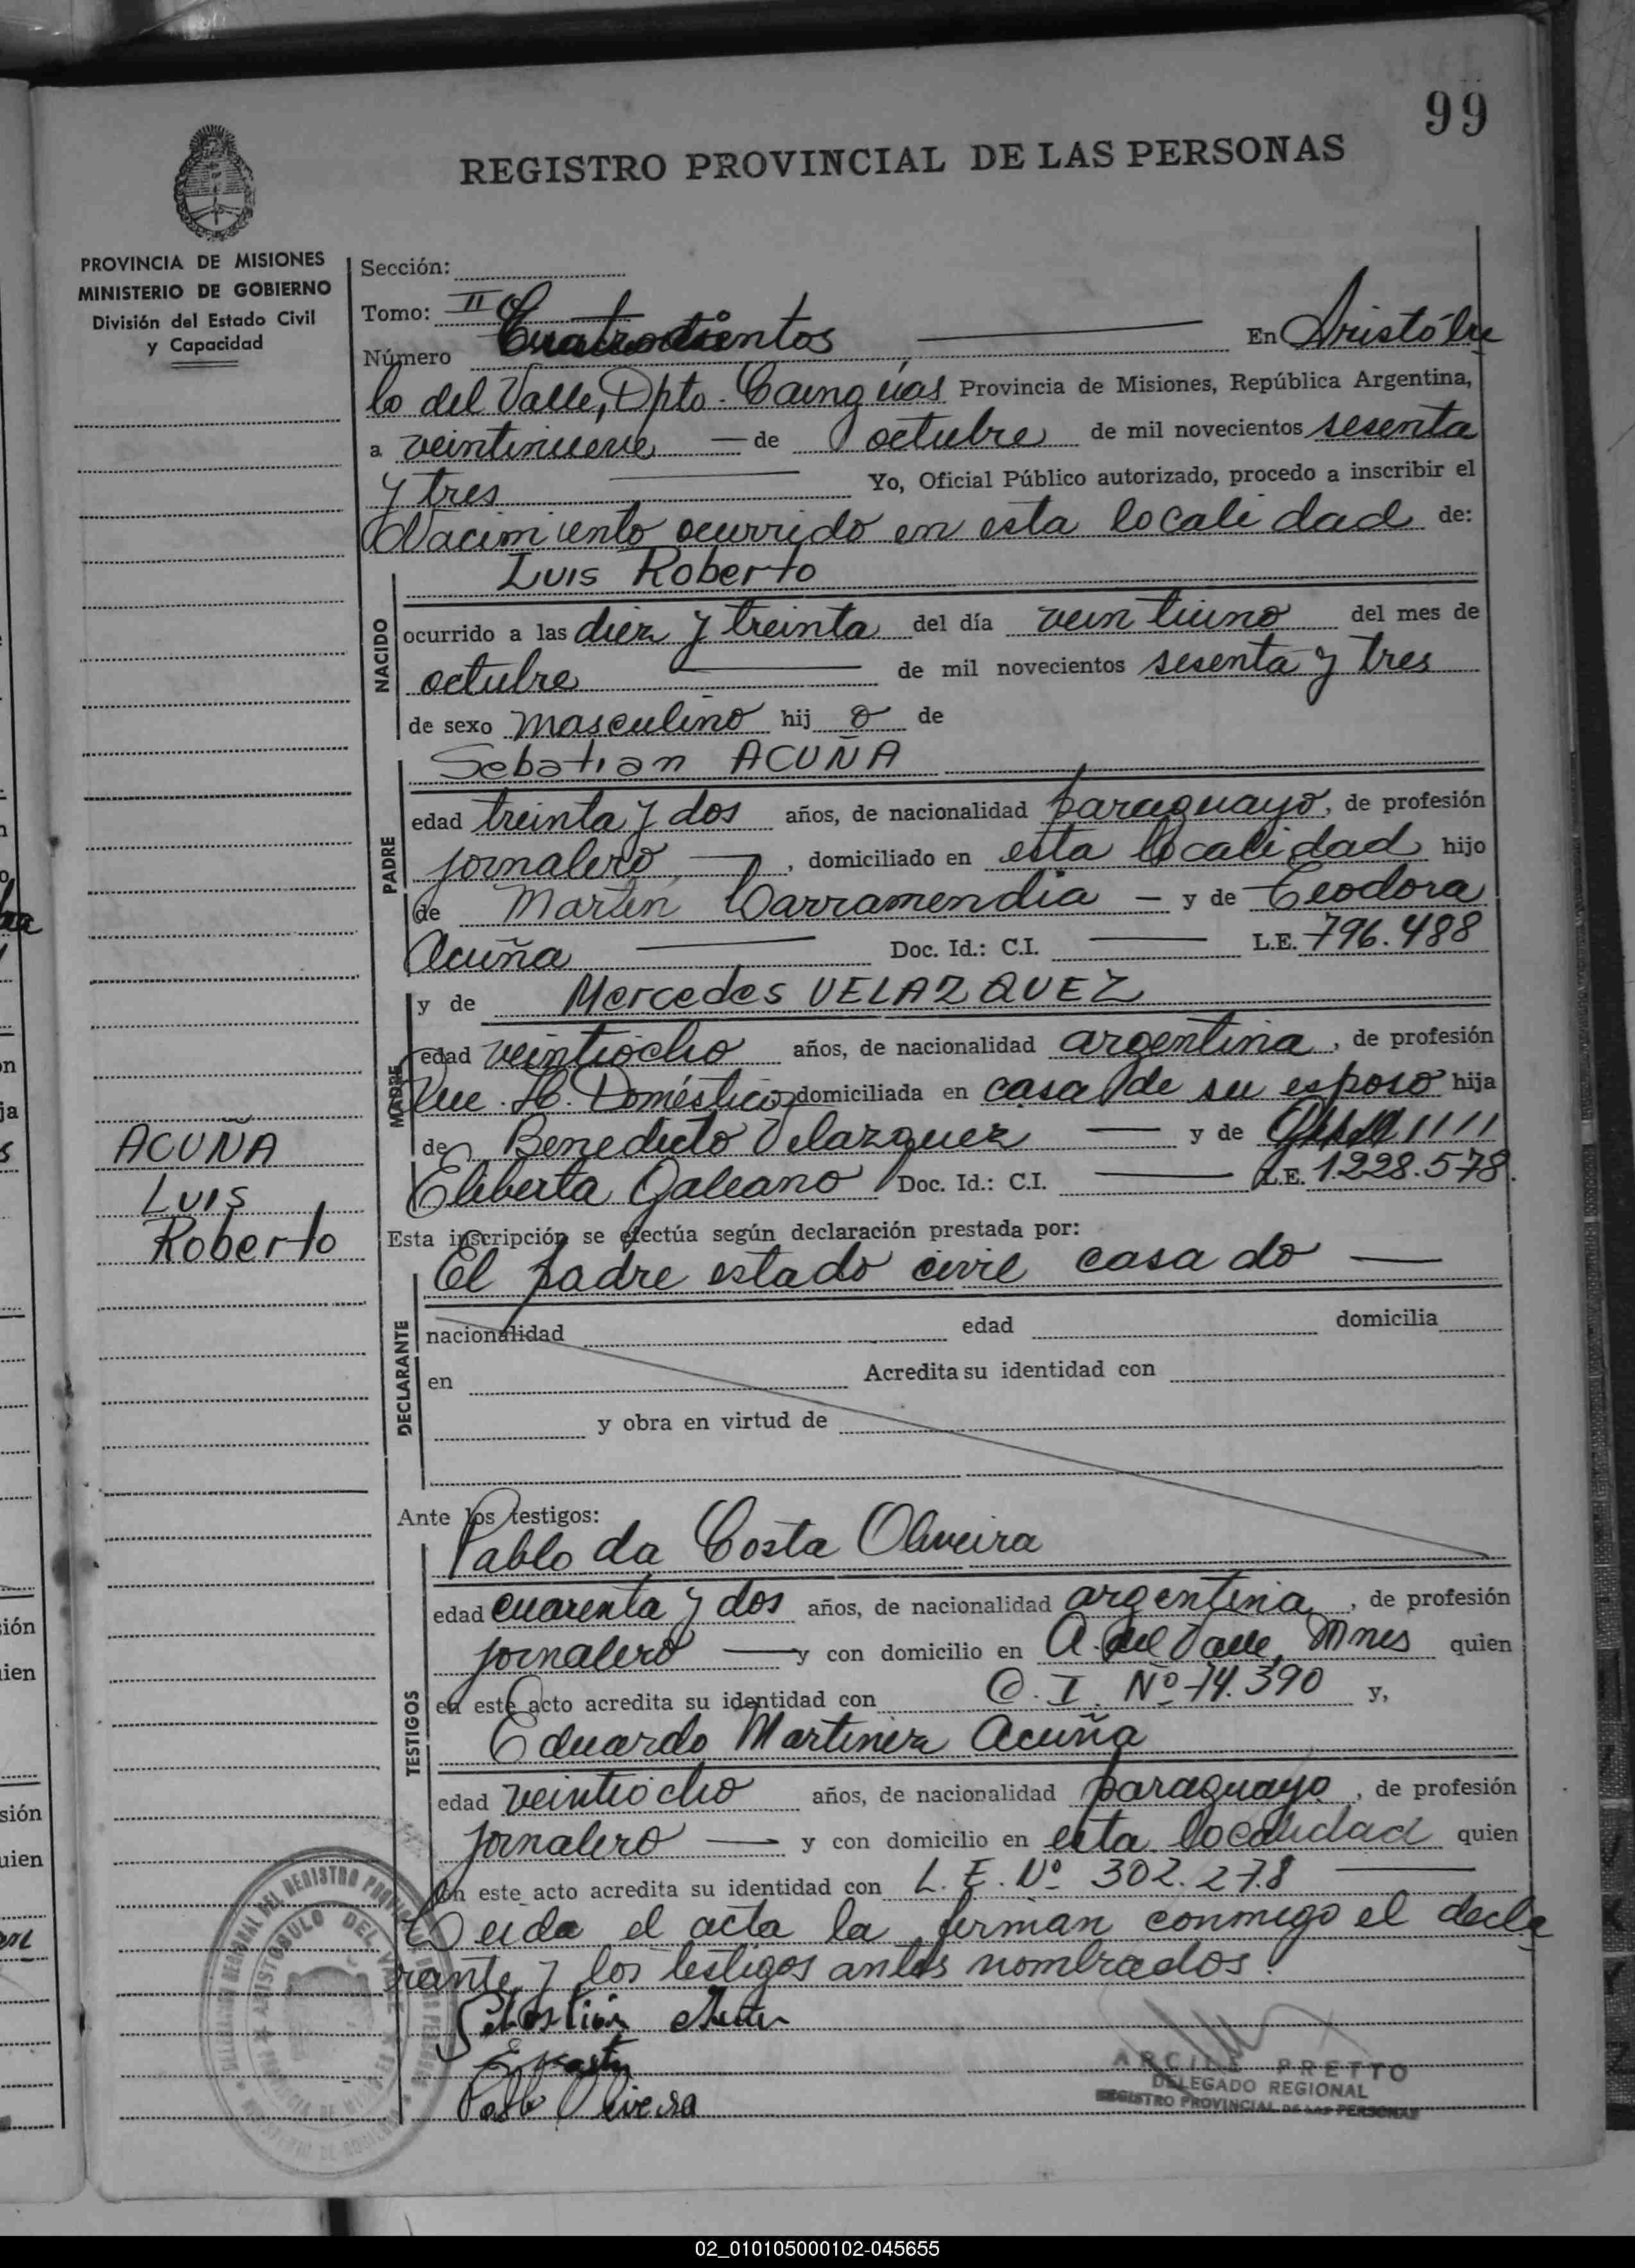 99
REGISTRO PROVINCIAL DE LAS PERSONAS
PROVINCIA DE MISIONES
MINISTERIO DE GOBIERNO
División del Estado Civil
y Capacidad
Sección:
Tomo: II
Número Cuatrocientos En Aristóbu
lo del Valle, Dpto. Cainguas Provincia de Misiones, República Argentina,
a veintinueve de octubre de mil novecientos sesenta
y tres Yo, Oficial Público autorizado, procedo a inscribir el
Nacimiento ocurrido en esta localidad de:
Luis Roberto
NACIDO
ocurrido a las diez y treinta del día veintiuno del mes de
octubre de mil novecientos sesenta y tres
de sexo masculino hij o de
Sebatian ACUÑA
PADRE
edad treinta y dos años, de nacionalidad paraguayo, de profesión
jornalero, domiciliado en esta localidad hijo
de Martin Carramendia y de Teodora
Acuña Doc. Id.: C.I. L.E. 796.488
y de Mercedes VELAZQUEZ
MADRE
edad veintiocho años, de nacionalidad argentina, de profesión
Que. H. Doméstico domiciliada en casa de su esposo hija
de Benedicto Velazquez y de
Eliberta Galeano Doc. Id.: C.I. L.E. 1.228.578.
ACUÑA
Luis
Roberto
Esta inscripción se efectúa según declaración prestada por:
El padre estado civil casado
DECLARANTE
nacionalidad edad domicilia
en Acredita su identidad con
y obra en virtud de
Ante los testigos:
Pablo da Costa Oliveira
TESTIGOS
edad cuarenta y dos años, de nacionalidad argentina, de profesión
jornalero y con domicilio en A. del Valle, Mnes quien
en este acto acredita su identidad con C. I. Nº 74.390 y,
Eduardo Martinez Acuña
edad veintiocho años, de nacionalidad paraguayo, de profesión
jornalero y con domicilio en esta localidad quien
en este acto acredita su identidad con L. E. Nº 302.278
Leida el acta la firman conmigo el decla
rante y los testigos antes nombrados.
Sebastián
Pablo Oliveira
ARCILE PRETTO
DELEGADO REGIONAL
REGISTRO PROVINCIAL DE LAS PERSONAS
ARISTOBULO DEL VALLE
02_010105000102-045655